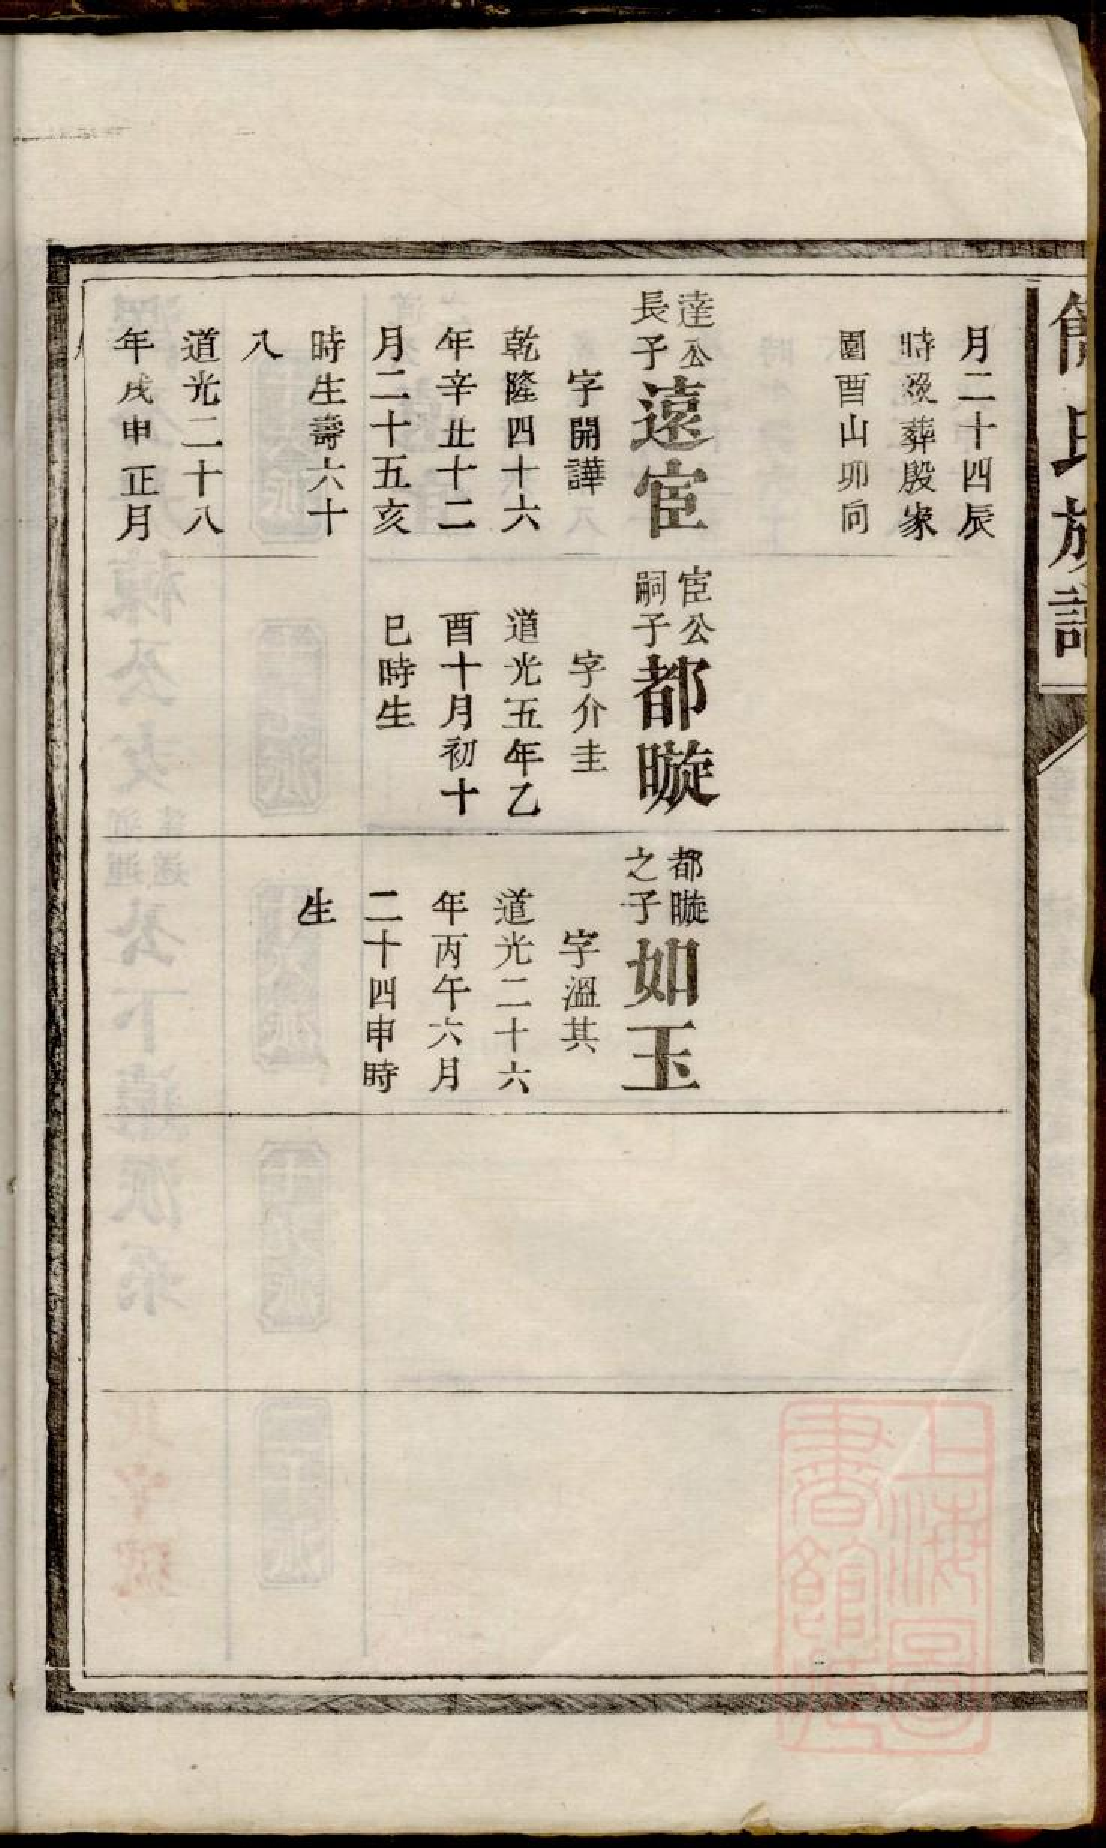 氏族譜
月二十四辰
時殁葬殷家
園酉山卯向
達公
長子
遠宦
字開譁
乾隆四十六
年辛丑十二
月二十五亥
時生壽六十
八
道光二十八
年戊申正月
宦公
嗣子
都暶
字介圭
道光五年乙
酉十月初十
巳時生
都暶
之子
如玉
字溫其
道光二十六
年丙午六月
二十四申時
生
上海圖
書館藏